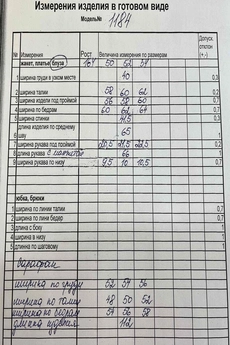 Измерения изделия в готовом виде
Модель№ 1184
№ Измерения Рост Величина измерения по размерам Допуск отклон (+,-)
жакет, платье блуза 164 50 52 54
1 ширина груди в узком месте 40 0,3
2 ширина талии 58 60 62
3 ширина изделия под проймой 56 58 60 0,7
4 ширина по бедрам 60 62 64 0,7
5 ширина спинки 41,5 0,3
длина изделия по среднему
6 шву 65 1
7 ширина рукава под проймой 0,2
8 длина рукава с манжетой 66 0,7
9 ширина рукава по низу 9,5 10 10,5 0,2
юбка, брюки
1 ширина по линии талии 0,7
2 ширина по лини бедер 0,7
3 длина с боку 1
4 ширина в низу 1
5 длинна по шаговому 1
Сарафан
ширина по груди 52 54 56
ширина по талии 48 50 52
ширина по бедрам 54 56 58
длина изделия 112